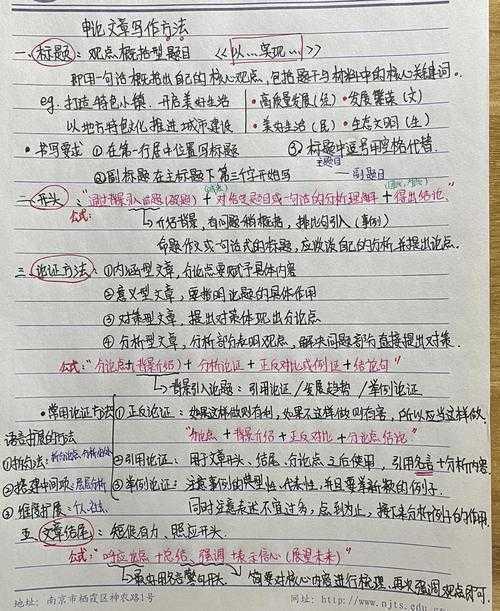 申论文章写作方法
一、标题：观点概括型题目 《以…实现…》
即用一句话概括出自己的核心观点，包括题干与材料中的核心关键词。
eg. 打造特色小镇 开启美好生活 •高质量发展(经) •发展繁荣(文)
以地方特色文化推进城市建设 •美好生活(民) •生态文明(生)
•书写要求 ①在第一行居中位置写标题 ③标题中逗号用空格代替.
主题目
②副标题在主标题下第三个字开始写 ——副题目
二、开头："通过背景引入话题(破题) + 对给定题目或一句话的分析理解 + 得出结论"
公式:
介绍背景，有问题稍概括，排比句引入(事例)
命题作文或一句话式的标题，应做谈自己的分析并提出论点.
三、论证方法：①内涵型文章，分论点要赋予具体内容
②意义型文章，要指明论题的具体作用
③对策型文章，提出对策体现出分论点
④分析型文章，分析部分表明观点，解决问题部分直接提出对策.
公式:"分论点+(背景介绍) + 分析论证 + 正反对比或例证 + 结论句"
背景引入论题：引用论证/发展趋势/举例论证
•常用论证方法 ①正反论证：如果这样做则有利，如果不这样做则有害，所以应当这样做.
语言扩展的方法 "分论点 + 背景介绍 + 正反对比 + 分论点结论"
①拆分法: ②引用论证：用于文章开头、结尾、分论点之后使用，引用名言+分析内容
②搭建中间项: 层层分析 ③举例论证：注意事例的典型性、代表性，并且要举新颖的例子.
③维度扩展: 个人、社会 同时注意表述不宜过多，点到为止，接下来分析例子的作用.
五、文章结尾：短促有力、照应开头.
公式:"呼应论点 + 总结、强调 + 表示信心(展望未来)"
简要对核心内容进行梳理，再次强调观点即可.
地址：南京市栖霞区神农路1号 网址: http://www.njts.edu.cn